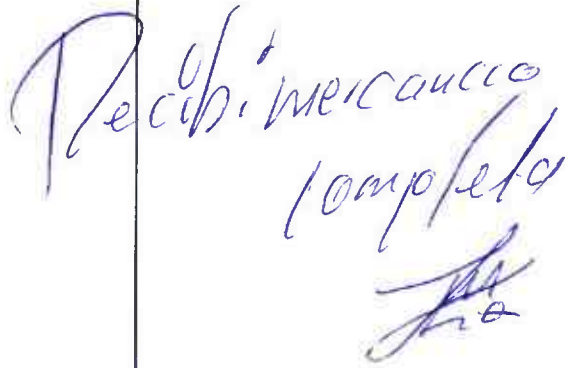 Recibi mercancia
completa